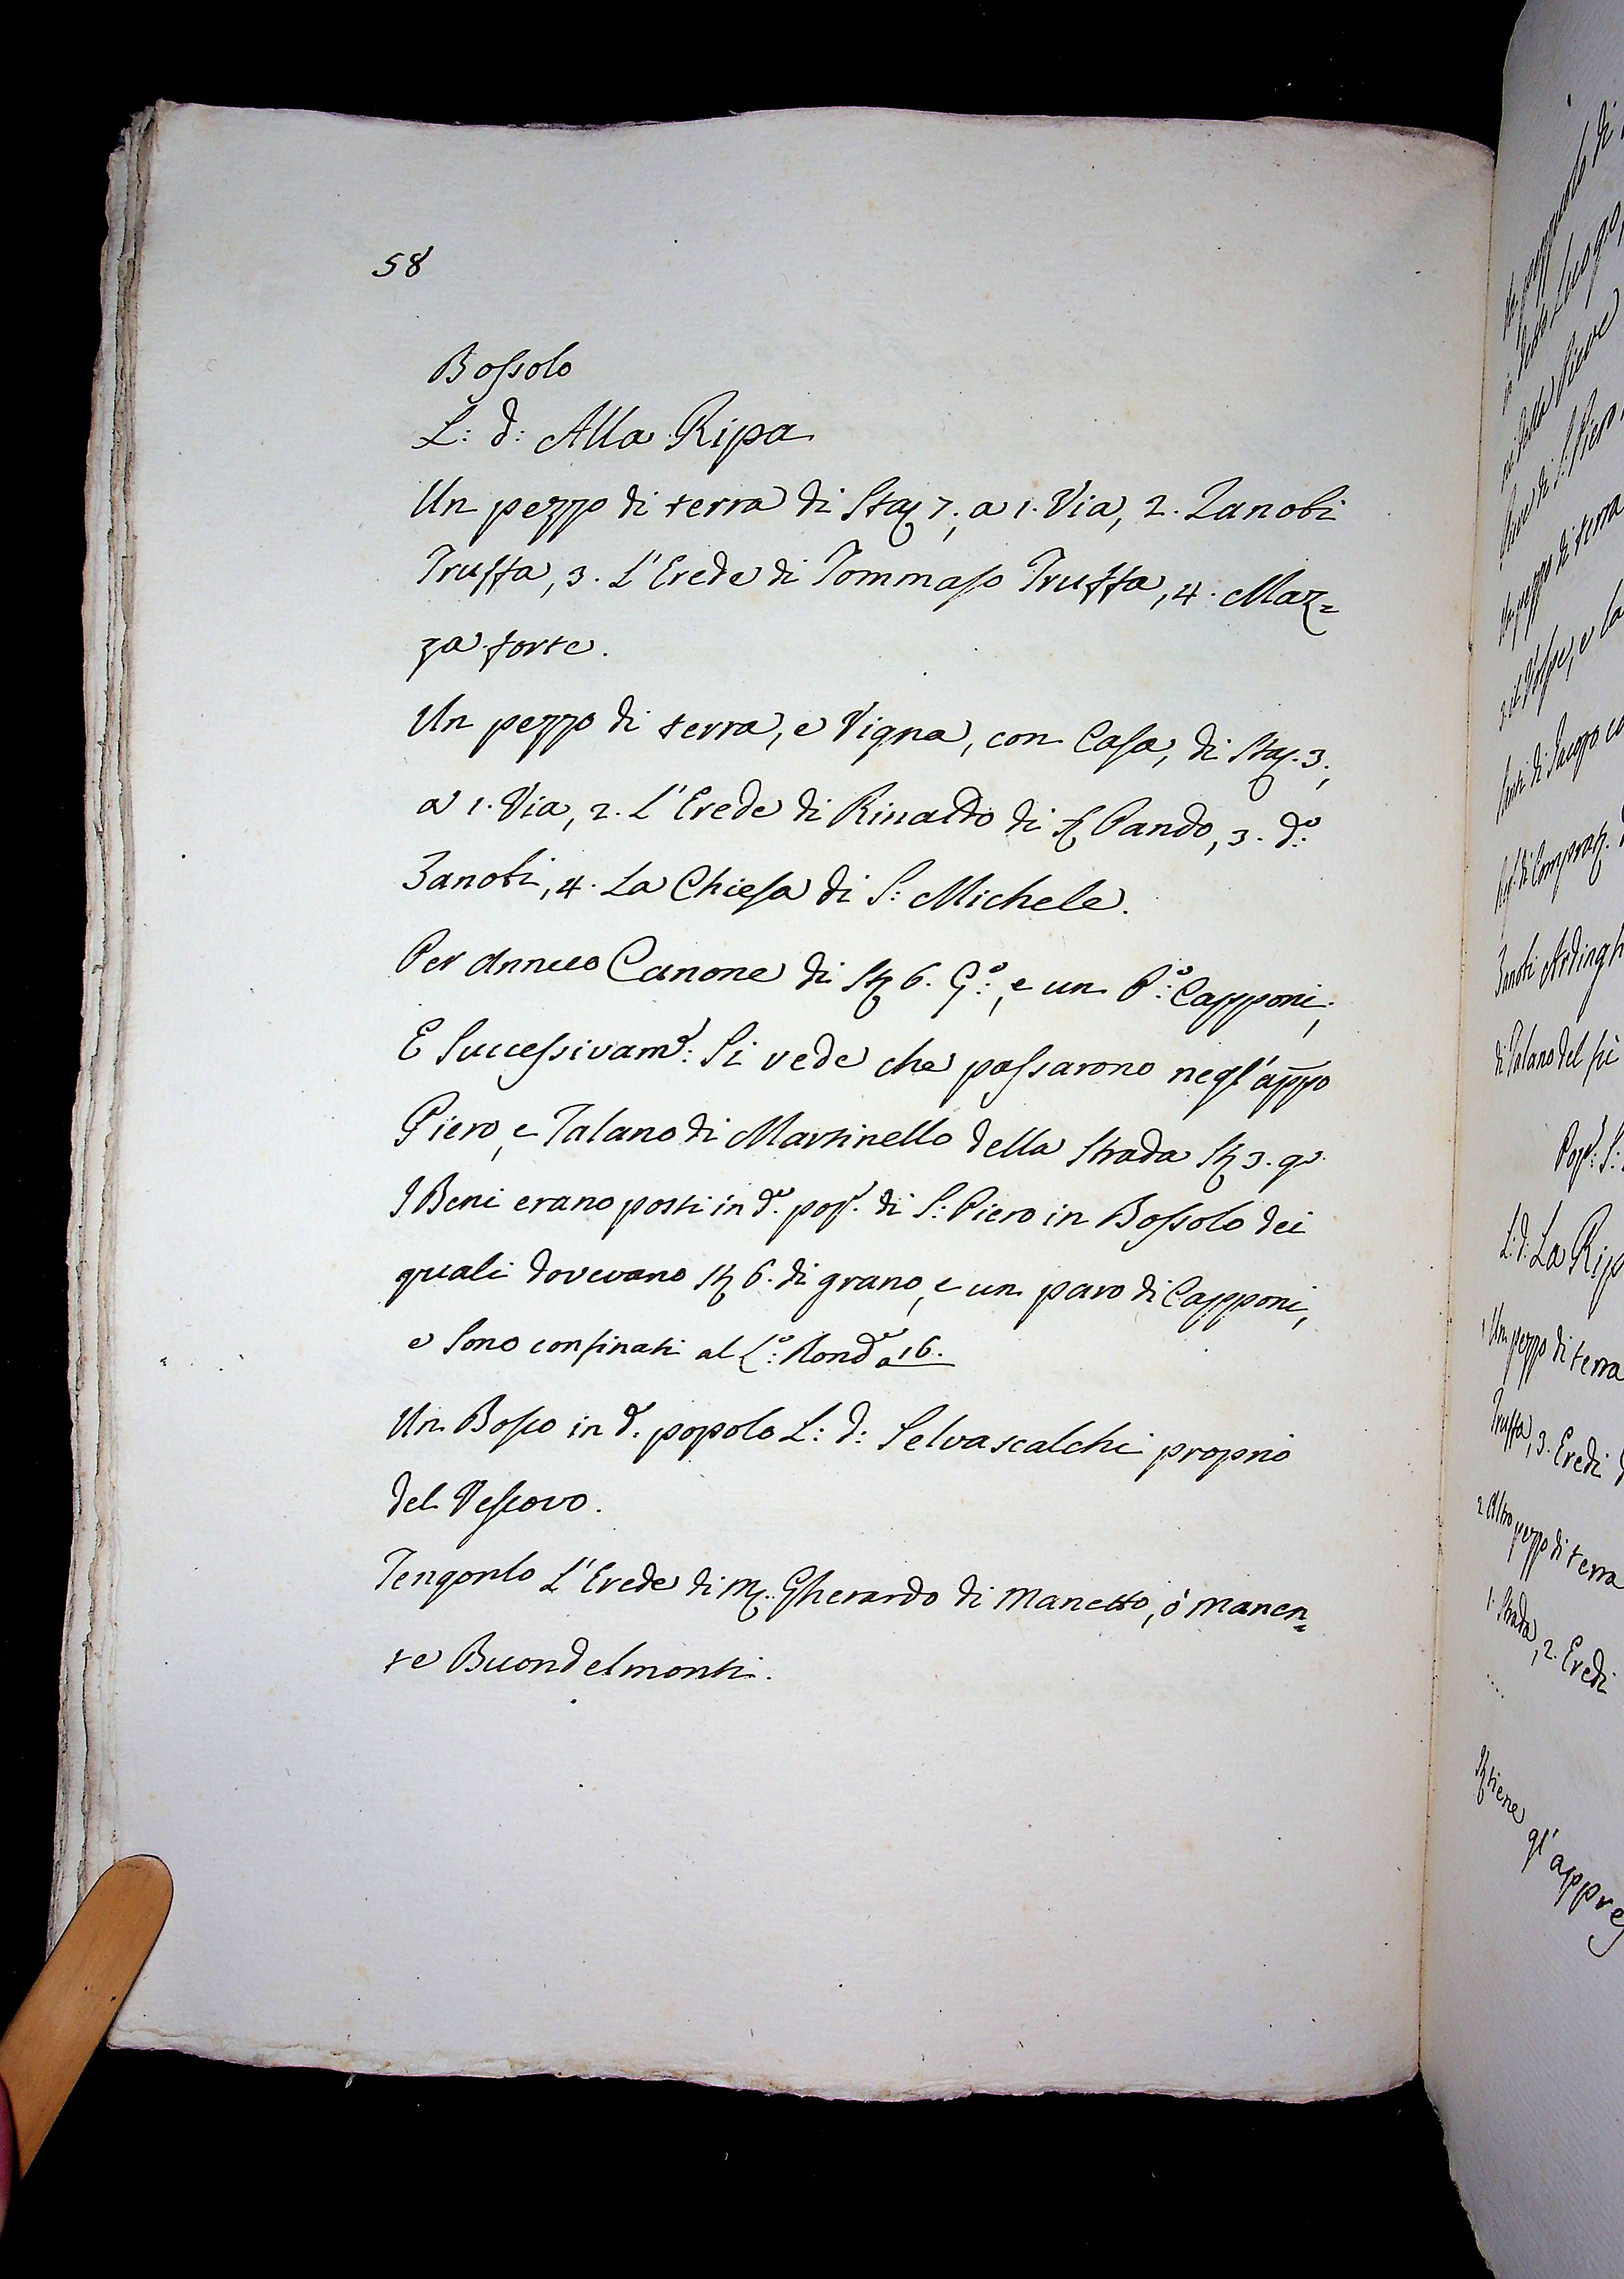 58
Bossolo
L: d: Alla Ripa
Un pezzo di terra di Staj 7., a 1. Via, 2. Zanobi
Truffa, 3. L'Erede di Tommaso Truffa, 4. Maz=
za forte.
Un pezzo di terra, e Vigna, con Casa, di Staj. 3.,
a 1. Via, 2. L'Erede di Rinaldo di Pando, 3. d.º
Zanobi, 4. La Chiesa di S: Michele.
Per Annuo Canone di St 6. G.º, e un P.º Capponi;
E Successivam.e: Si vede che passarono negl'appo
Piero, e Talano di Martinello della Strada St 3. g.º
I Beni erano posti in d.º pop.º di S: Piero in Bossolo dei
quali dovevano St 6. di grano, e un paro di Capponi,
e Sono confinati al L.º Rond.º a 16.
Un Bosco in d.º popolo L: d: Selvascalchi proprio
del Vescovo.
Tengonlo L'Erede di M. Gherardo di Manetto, ó Manen=
te Buondelmonti.
in detto Luogo,
Un pezzo di terra
Zanobi Ardingh
Pop.º: S:
L: d: La Rip
1 Un pezzo di terra
Truffa, 3. Eredi d
2 Altro pezzo di terra
1. Strada, 2. Eredi
....
gl'appre